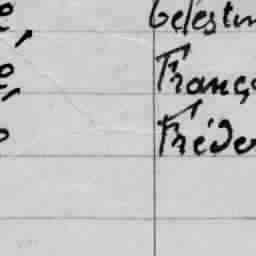 e, Célestin
e, Franç
e Fréde